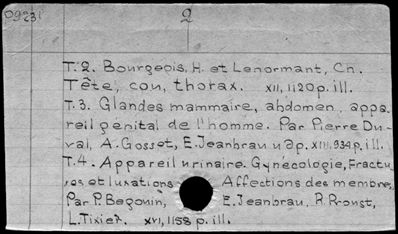 09231
2
T.2. Bourgeois. H. et Lenormant, Ch.
Tête, cou, thorax. XII, 1120 p. ill.
T.3. Glandes mammaire, abdomen, appa-
reil génital de l'homme. Par Pierre Du-
val, A. Gosset, E. Jeanbrau up. XIII, 934 p. ill.
T.4. Appareil urinaire. Gynécologie, Fractu-
res et luxations Affections des membres,
Par P. Begouin, E. Jeanbrau, R. Proust,
L. Tixier. XVI, 1158 p. ill.